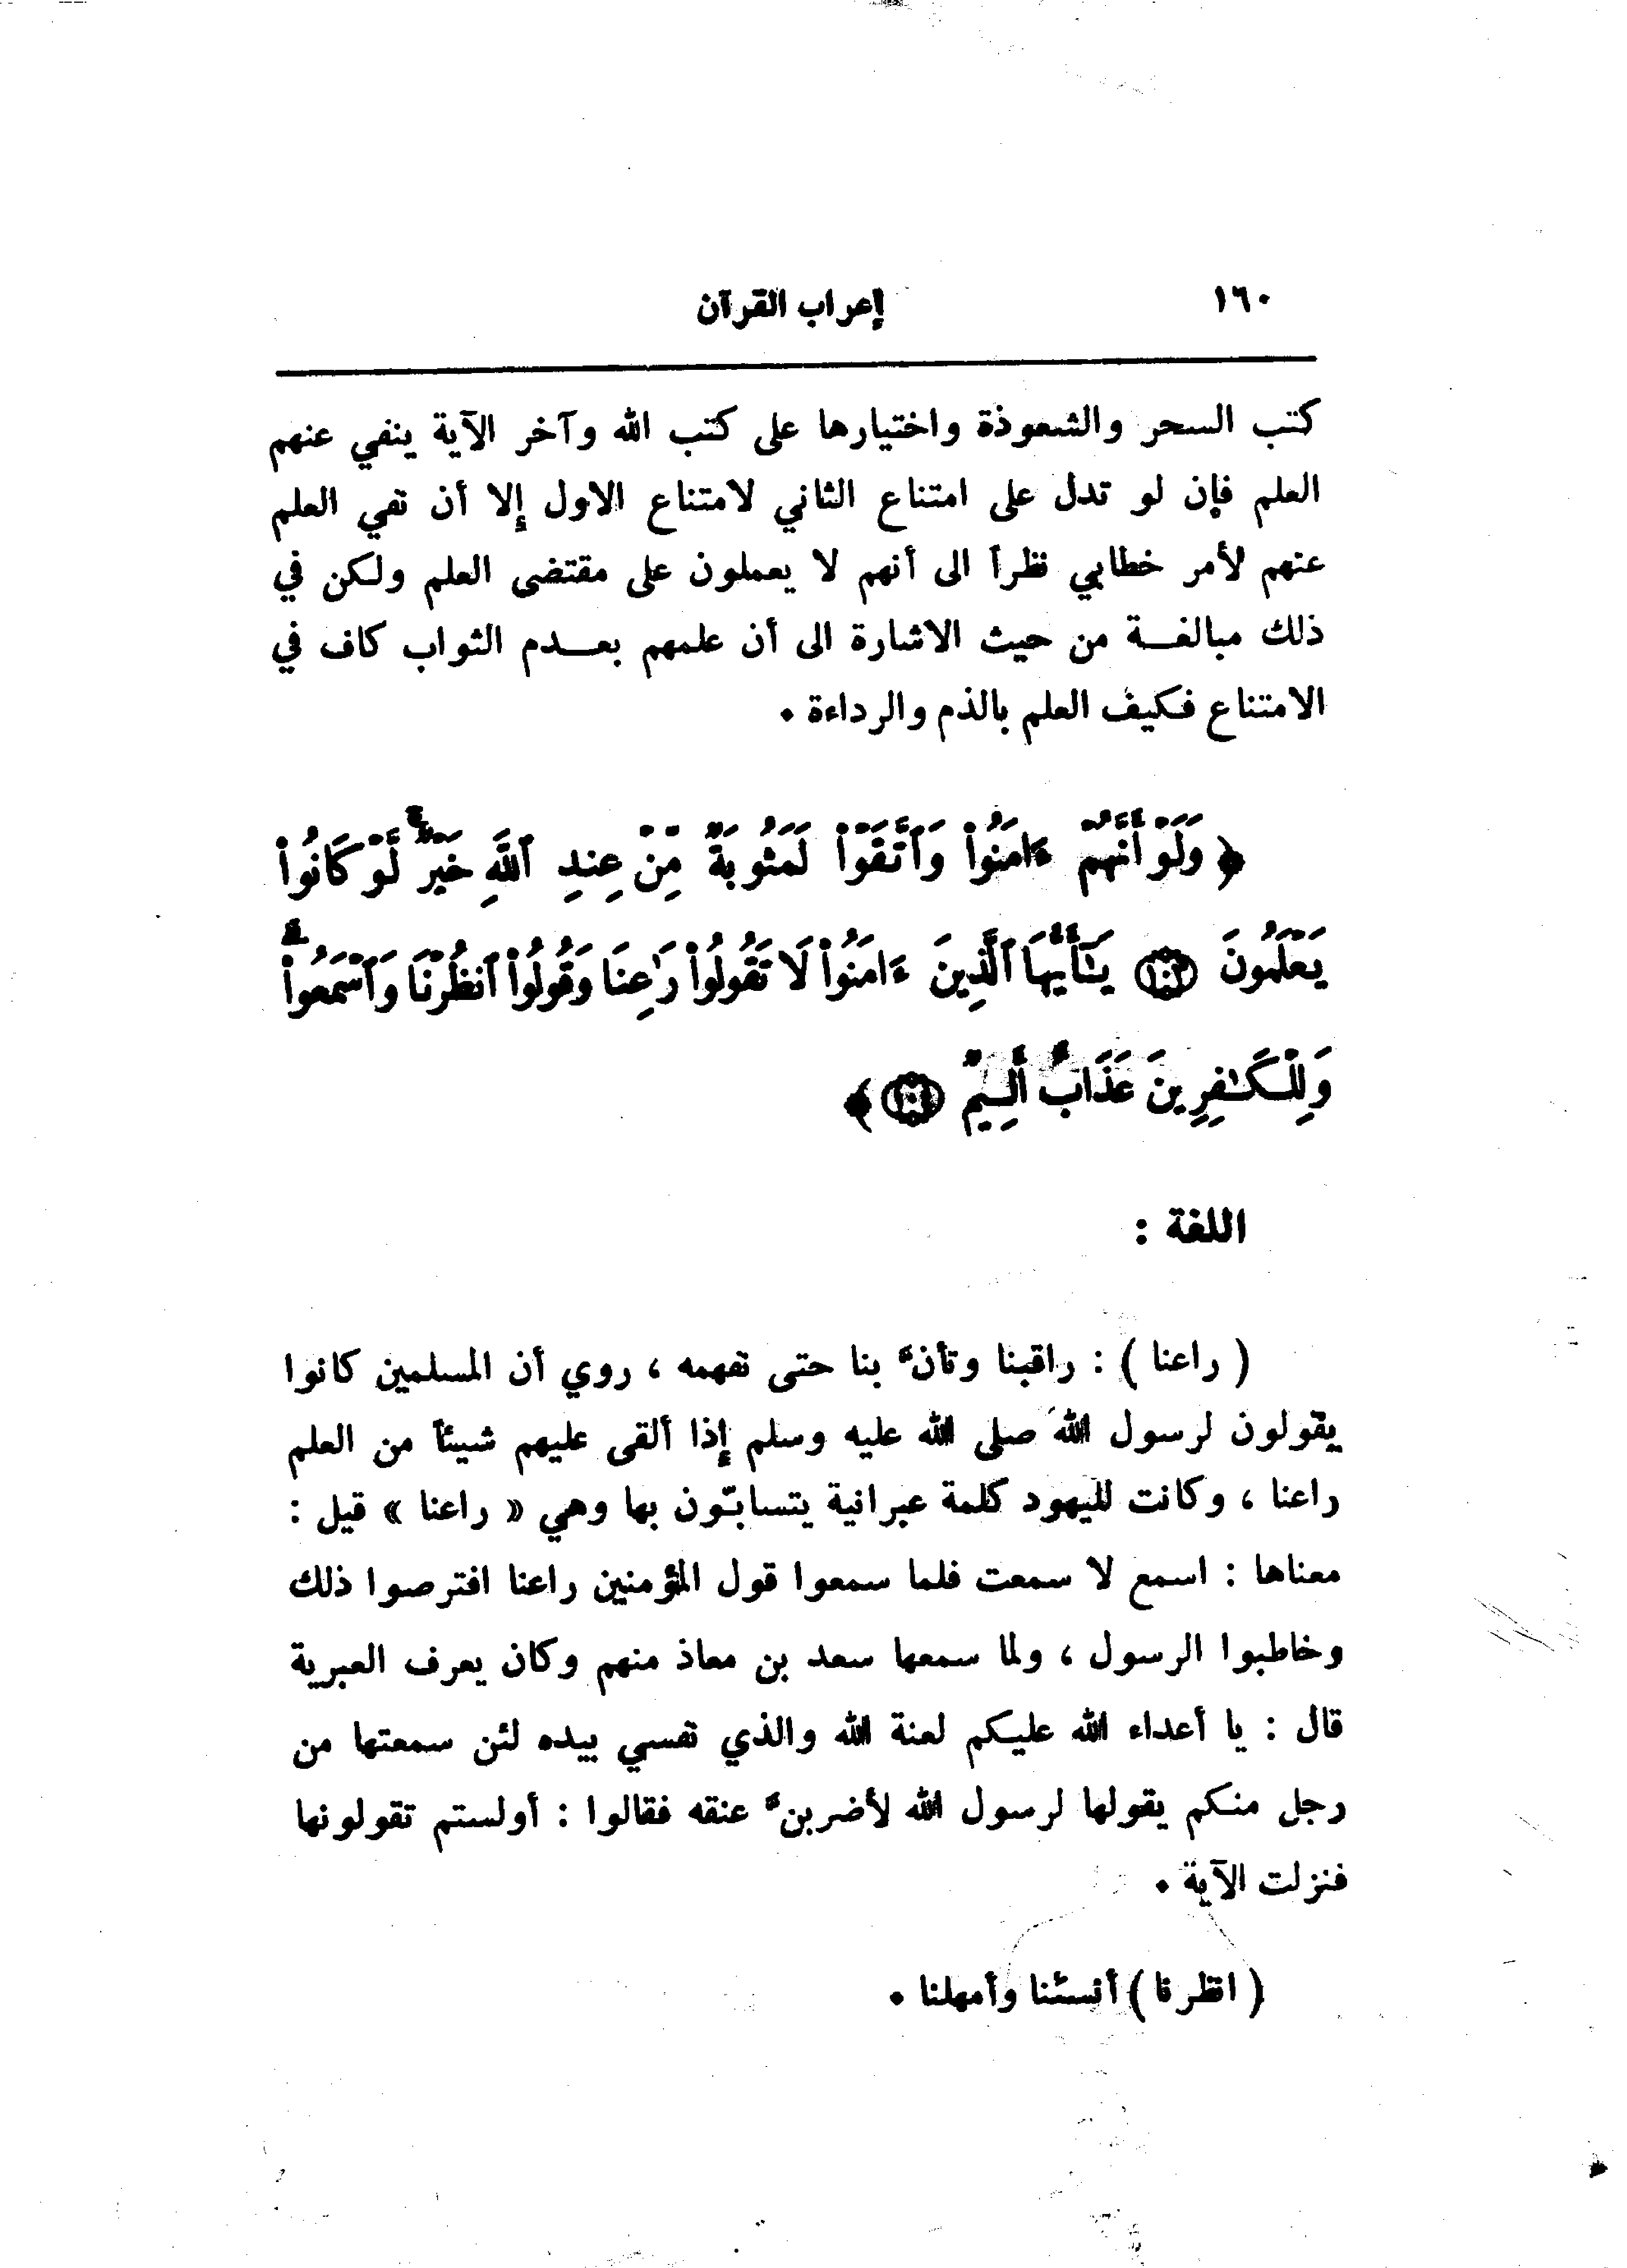 ١٦٠
إعراب القرآن
كتب السحر والشعوذة واختيارها على كتب الله وآخر الآية ينفي عنهم
العلم فإن لو تدل على امتناع الثاني لامتناع الاول إلا أن نفي العلم
عنهم لأمر خطابي نظراً الى أنهم لا يعملون على مقتضى العلم ولكن في
ذلك مبالغـــة من حيث الاشارة الى أن علمهم بعـــدم الثواب كاف في
الامتناع فكيف العلم بالذم والرداءة •
﴿ وَلَوْ أَنَّهُمْ ءَامَنُواْ وَٱتَّقَوْاْ لَمَثُوبَةٌ مِّنْ عِندِ ٱللَّهِ خَيْرٌ ۖ لَّوْ كَانُواْ
يَعْلَمُونَ ﴿١٠٣﴾ يَـٰٓأَيُّهَا ٱلَّذِينَ ءَامَنُواْ لَا تَقُولُواْ رَٰعِنَا وَقُولُواْ ٱنظُرْنَا وَٱسْمَعُواْ ۗ
وَلِلْكَـٰفِرِينَ عَذَابٌ أَلِيمٌ ﴿١٠٤﴾ ﴾
اللغة :
( راعنا ) : راقبنا وتأنّ بنا حتى نفهمه ، روي أن المسلمين كانوا
يقولون لرسول الله صلى الله عليه وسلم إذا ألقى عليهم شيئاً من العلم
راعنا ، وكانت لليهود كلمة عبرانية يتسابّون بها وهي « راعنا » قيل :
معناها : اسمع لا سمعت فلما سمعوا قول المؤمنين راعنا افترصوا ذلك
وخاطبوا الرسول ، ولما سمعها سعد بن معاذ منهم وكان يعرف العبرية
قال : يا أعداء الله عليكم لعنة الله والذي نفسي بيده لئن سمعتها من
رجل منكم يقولها لرسول الله لأضربنّ عنقه فقالوا : أولستم تقولونها
فنزلت الآية •
( انظرنا ) أنسئنا وأمهلنا •